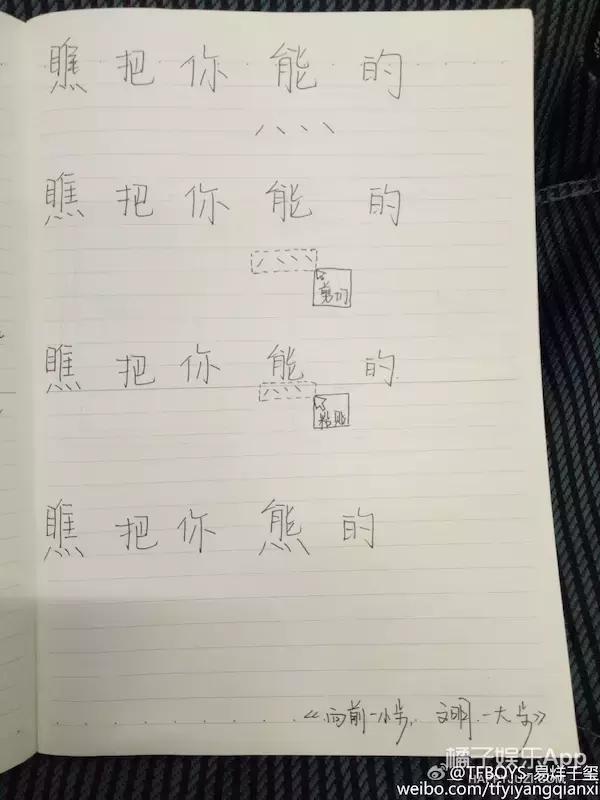 瞧 把 你 能 的
灬
瞧 把 你 能 的
灬
剪切
瞧 把 你 能 的
灬
粘贴
瞧 把 你 熊 的
《向前一小步，文明一大步》
橘子娱乐App
HAPPYJUZI.COM
@TFBOYS-易烊千玺
weibo.com/tfyiyangqianxi